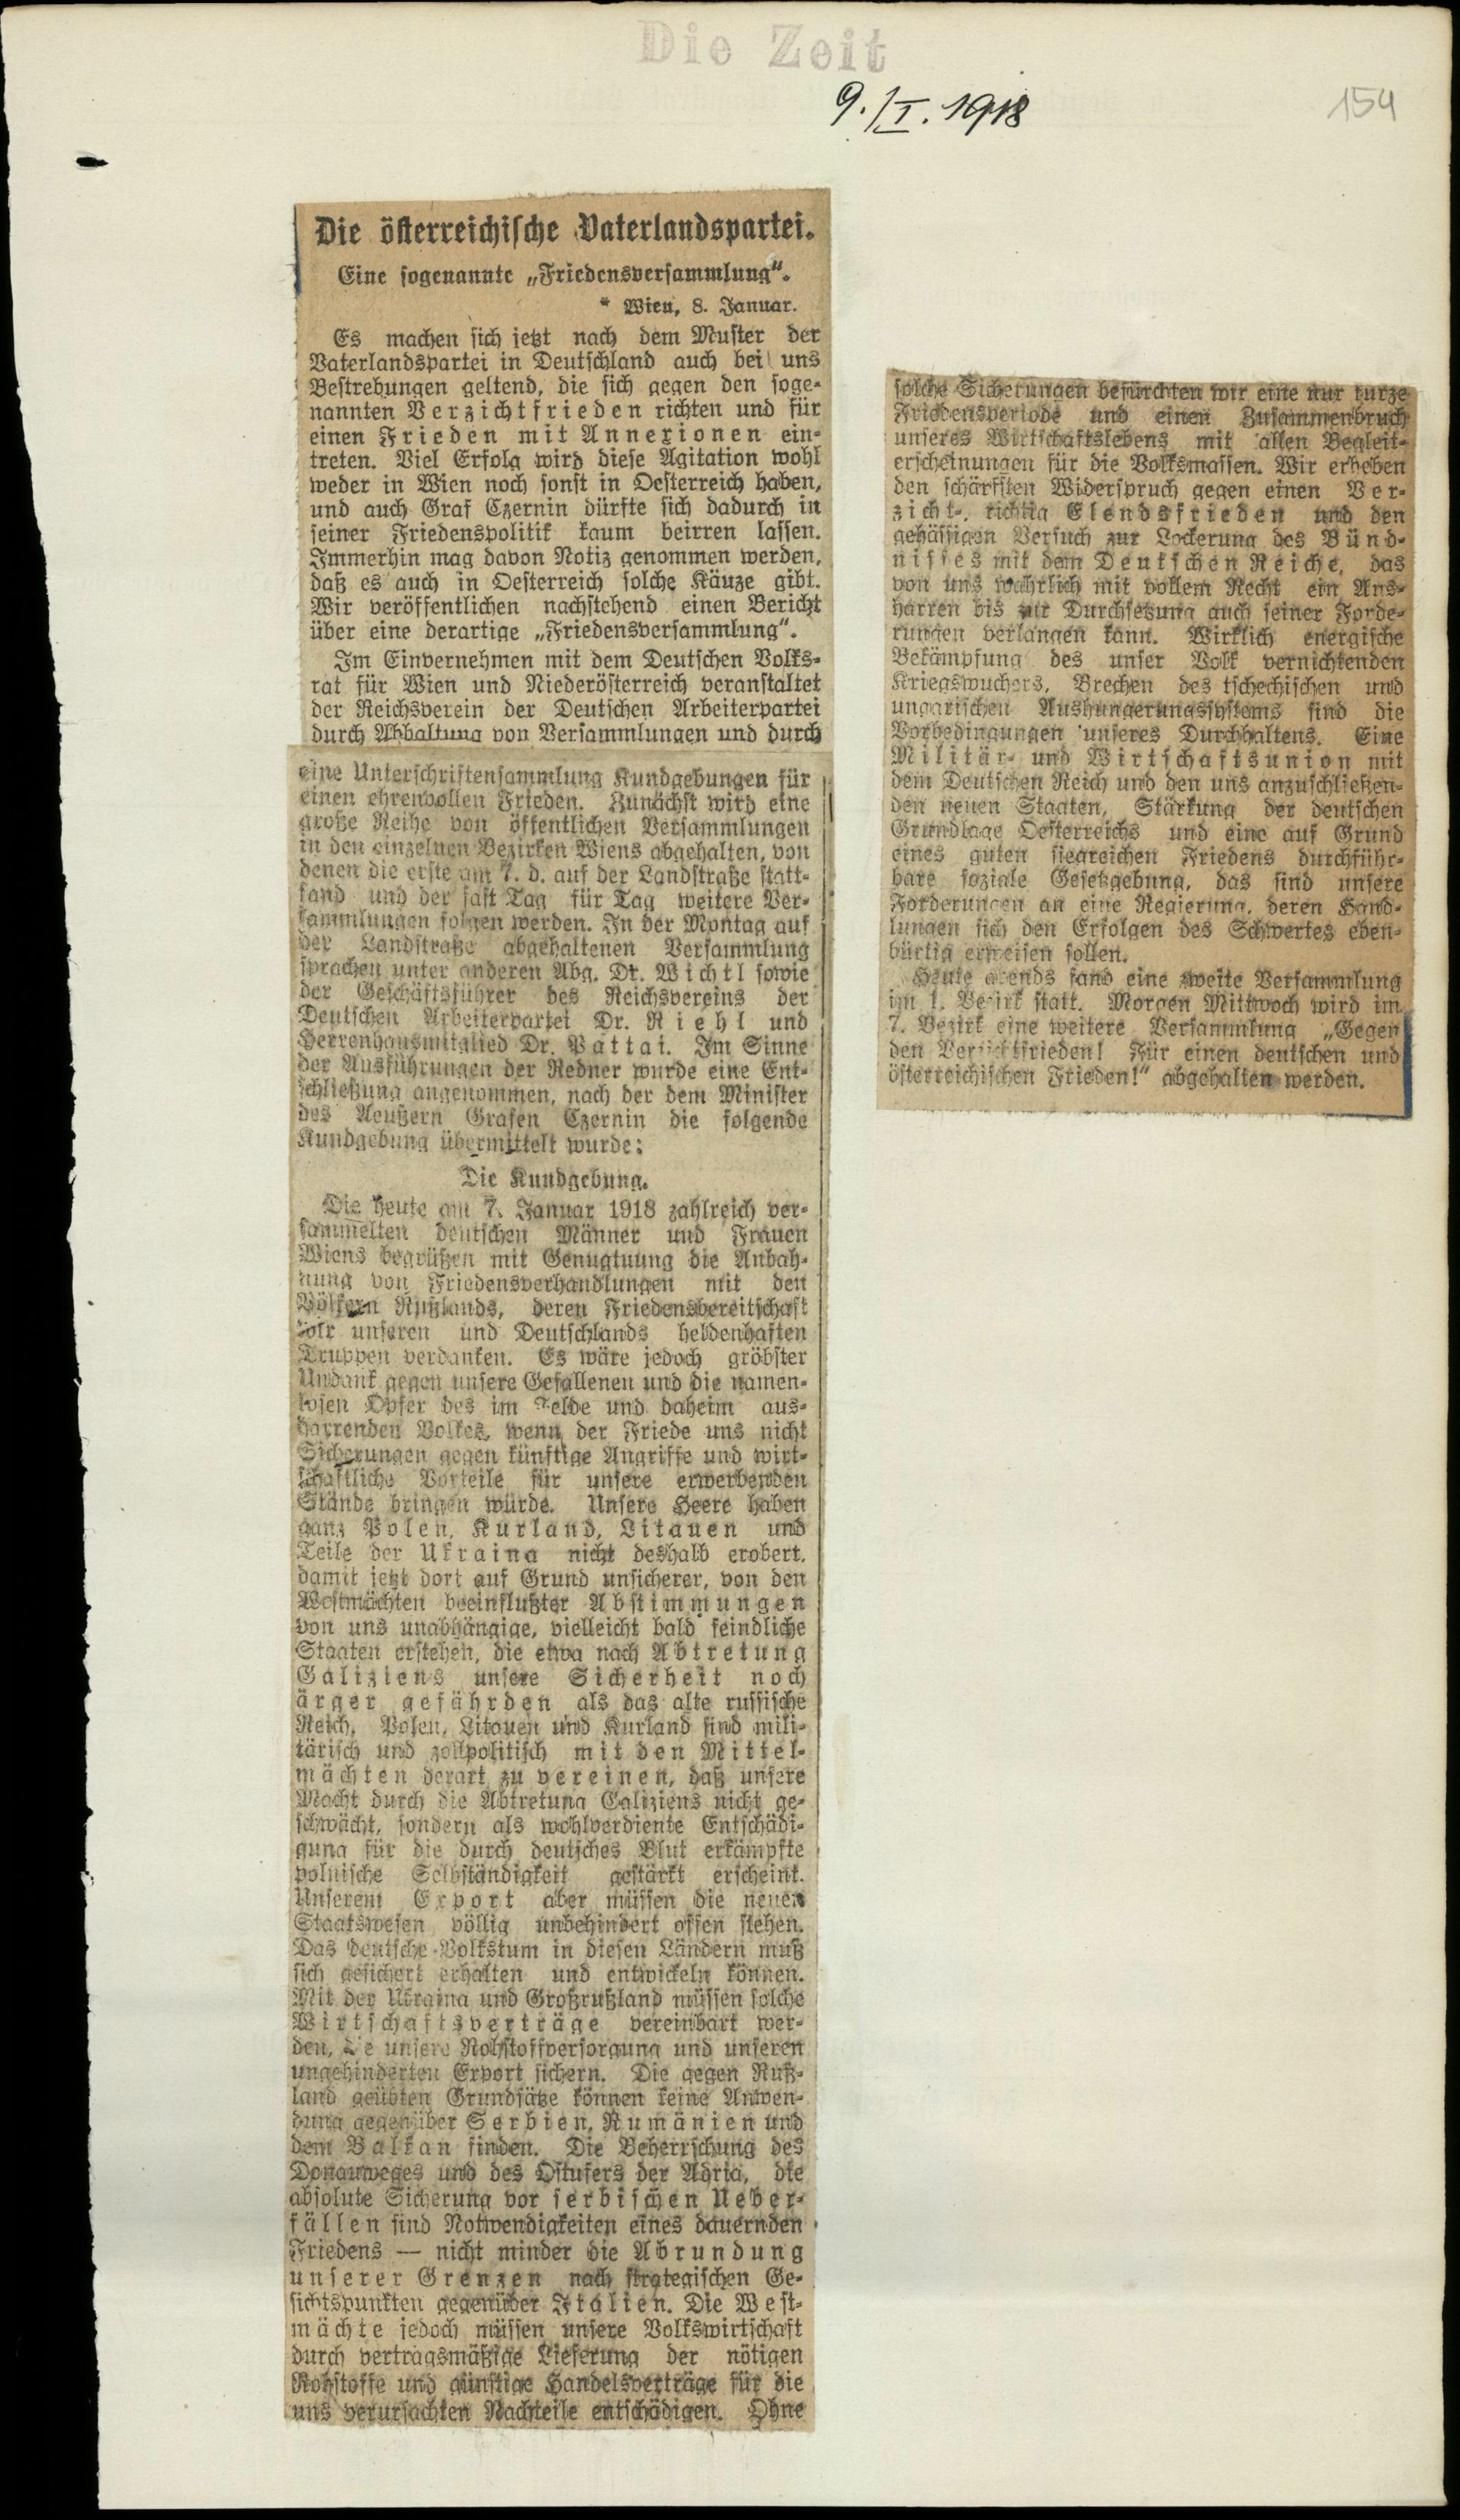 Die Zeit
9./I. 1918
154
Die österreichische Vaterlandspartei.
Eine sogenannte „Friedensversammlung“.
* Wien, 8. Januar.
Es machen sich jetzt nach dem Muster der
Vaterlandspartei in Deutschland auch bei uns
Bestrebungen geltend, die sich gegen den soge-
nannten Verzichtfrieden richten und für
einen Frieden mit Annexionen ein-
treten. Viel Erfolg wird diese Agitation wohl
weder in Wien noch sonst in Oesterreich haben,
und auch Graf Czernin dürfte sich dadurch in
seiner Friedenspolitik kaum beirren lassen.
Immerhin mag davon Notiz genommen werden,
daß es auch in Oesterreich solche Käuze gibt.
Wir veröffentlichen nachstehend einen Bericht
über eine derartige „Friedensversammlung“.
Im Einvernehmen mit dem Deutschen Volks-
rat für Wien und Niederösterreich veranstaltet
der Reichsverein der Deutschen Arbeiterpartei
durch Abhaltung von Versammlungen und durch
eine Unterschriftensammlung Kundgebungen für
einen ehrenvollen Frieden. Zunächst wird eine
große Reihe von öffentlichen Versammlungen
in den einzelnen Bezirken Wiens abgehalten, von
denen die erste am 7. d. auf der Landstraße statt-
fand und der fast Tag für Tag weitere Ver-
sammlungen folgen werden. In der Montag auf
der Landstraße abgehaltenen Versammlung
sprachen unter anderen Abg. Dr. Wichtl sowie
der Geschäftsführer des Reichsvereins der
Deutschen Arbeiterpartei Dr. Riehl und
Herrenhausmitglied Dr. Pattai. Im Sinne
der Ausführungen der Redner wurde eine Ent-
schließung angenommen, nach der dem Minister
des Aeußern Grafen Czernin die folgende
Kundgebung übermittelt wurde:
Die Kundgebung.
Die heute am 7. Januar 1918 zahlreich ver-
sammelten deutschen Männer und Frauen
Wiens begrüßen mit Genugtuung die Anbah-
nung von Friedensverhandlungen mit den
Völkern Rußlands, deren Friedensbereitschaft
wir unseren und Deutschlands heldenhaften
Truppen verdanken. Es wäre jedoch gröbster
Undank gegen unsere Gefallenen und die namen-
losen Opfer des im Felde und daheim aus-
harrenden Volkes, wenn der Friede uns nicht
Sicherungen gegen künftige Angriffe und wirt-
schaftliche Vorteile für unsere erwerbenden
Stände bringen würde. Unsere Heere haben
ganz Polen, Kurland, Litauen und
Teile der Ukraina nicht deshalb erobert,
damit jetzt dort auf Grund unsicherer, von den
Westmächten beeinflußter Abstimmungen
von uns unabhängige, vielleicht bald feindliche
Staaten erstehen, die etwa nach Abtretung
Galiziens unsere Sicherheit noch
ärger gefährden als das alte russische
Reich. Polen, Litauen und Kurland sind mili-
tärisch und zollpolitisch mit den Mittel-
mächten derart zu vereinen, daß unsere
Macht durch die Abtretung Galiziens nicht ge-
schwächt, sondern als wohlverdiente Entschädi-
gung für die durch deutsches Blut erkämpfte
polnische Selbständigkeit gestärkt erscheint.
Unserem Export aber müssen die neuen
Staatswesen völlig unbehindert offen stehen.
Das deutsche Volkstum in diesen Ländern muß
sich gesichert erhalten und entwickeln können.
Mit der Ukraina und Großrußland müssen solche
Wirtschaftsverträge vereinbart wer-
den, die unsere Rohstoffversorgung und unseren
ungehinderten Export sichern. Die gegen Ruß-
land geübten Grundsätze können keine Anwen-
dung gegenüber Serbien, Rumänien und
dem Balkan finden. Die Beherrschung des
Donauweges und des Ostufers der Adria, die
absolute Sicherung vor serbischen Ueber-
fällen sind Notwendigkeiten eines dauernden
Friedens — nicht minder die Abrundung
unserer Grenzen nach strategischen Ge-
sichtspunkten gegenüber Italien. Die West-
mächte jedoch müssen unsere Volkswirtschaft
durch vertragsmäßige Lieferung der nötigen
Rohstoffe und günstige Handelsverträge für die
uns verursachten Nachteile entschädigen. Ohne
solche Sicherungen befürchten wir eine nur kurze
Friedensperiode und einen Zusammenbruch
unseres Wirtschaftslebens mit allen Begleit-
erscheinungen für die Volksmassen. Wir erheben
den schärfsten Widerspruch gegen einen Ver-
zicht-, richtig Elendsfrieden und den
gehässigen Versuch zur Lockerung des Bünd-
nisses mit dem Deutschen Reiche, das
von uns wahrlich mit vollem Recht ein Aus-
harren bis zur Durchsetzung auch seiner Forde-
rungen verlangen kann. Wirklich energische
Bekämpfung des unser Volk vernichtenden
Kriegswuchers, Brechen des tschechischen und
ungarischen Aushungerungssystems sind die
Vorbedingungen unseres Durchhaltens. Eine
Militär- und Wirtschaftsunion mit
dem Deutschen Reich und den uns anzuschließen-
den neuen Staaten, Stärkung der deutschen
Grundlage Oesterreichs und eine auf Grund
eines guten siegreichen Friedens durchführ-
bare soziale Gesetzgebung, das sind unsere
Forderungen an eine Regierung, deren Hand-
lungen sich den Erfolgen des Schwertes eben-
bürtig erweisen sollen.
Heute abends fand eine zweite Versammlung
im 1. Bezirk statt. Morgen Mittwoch wird im
7. Bezirk eine weitere Versammlung „Gegen
den Verzichtfrieden! Für einen deutschen und
österreichischen Frieden!“ abgehalten werden.